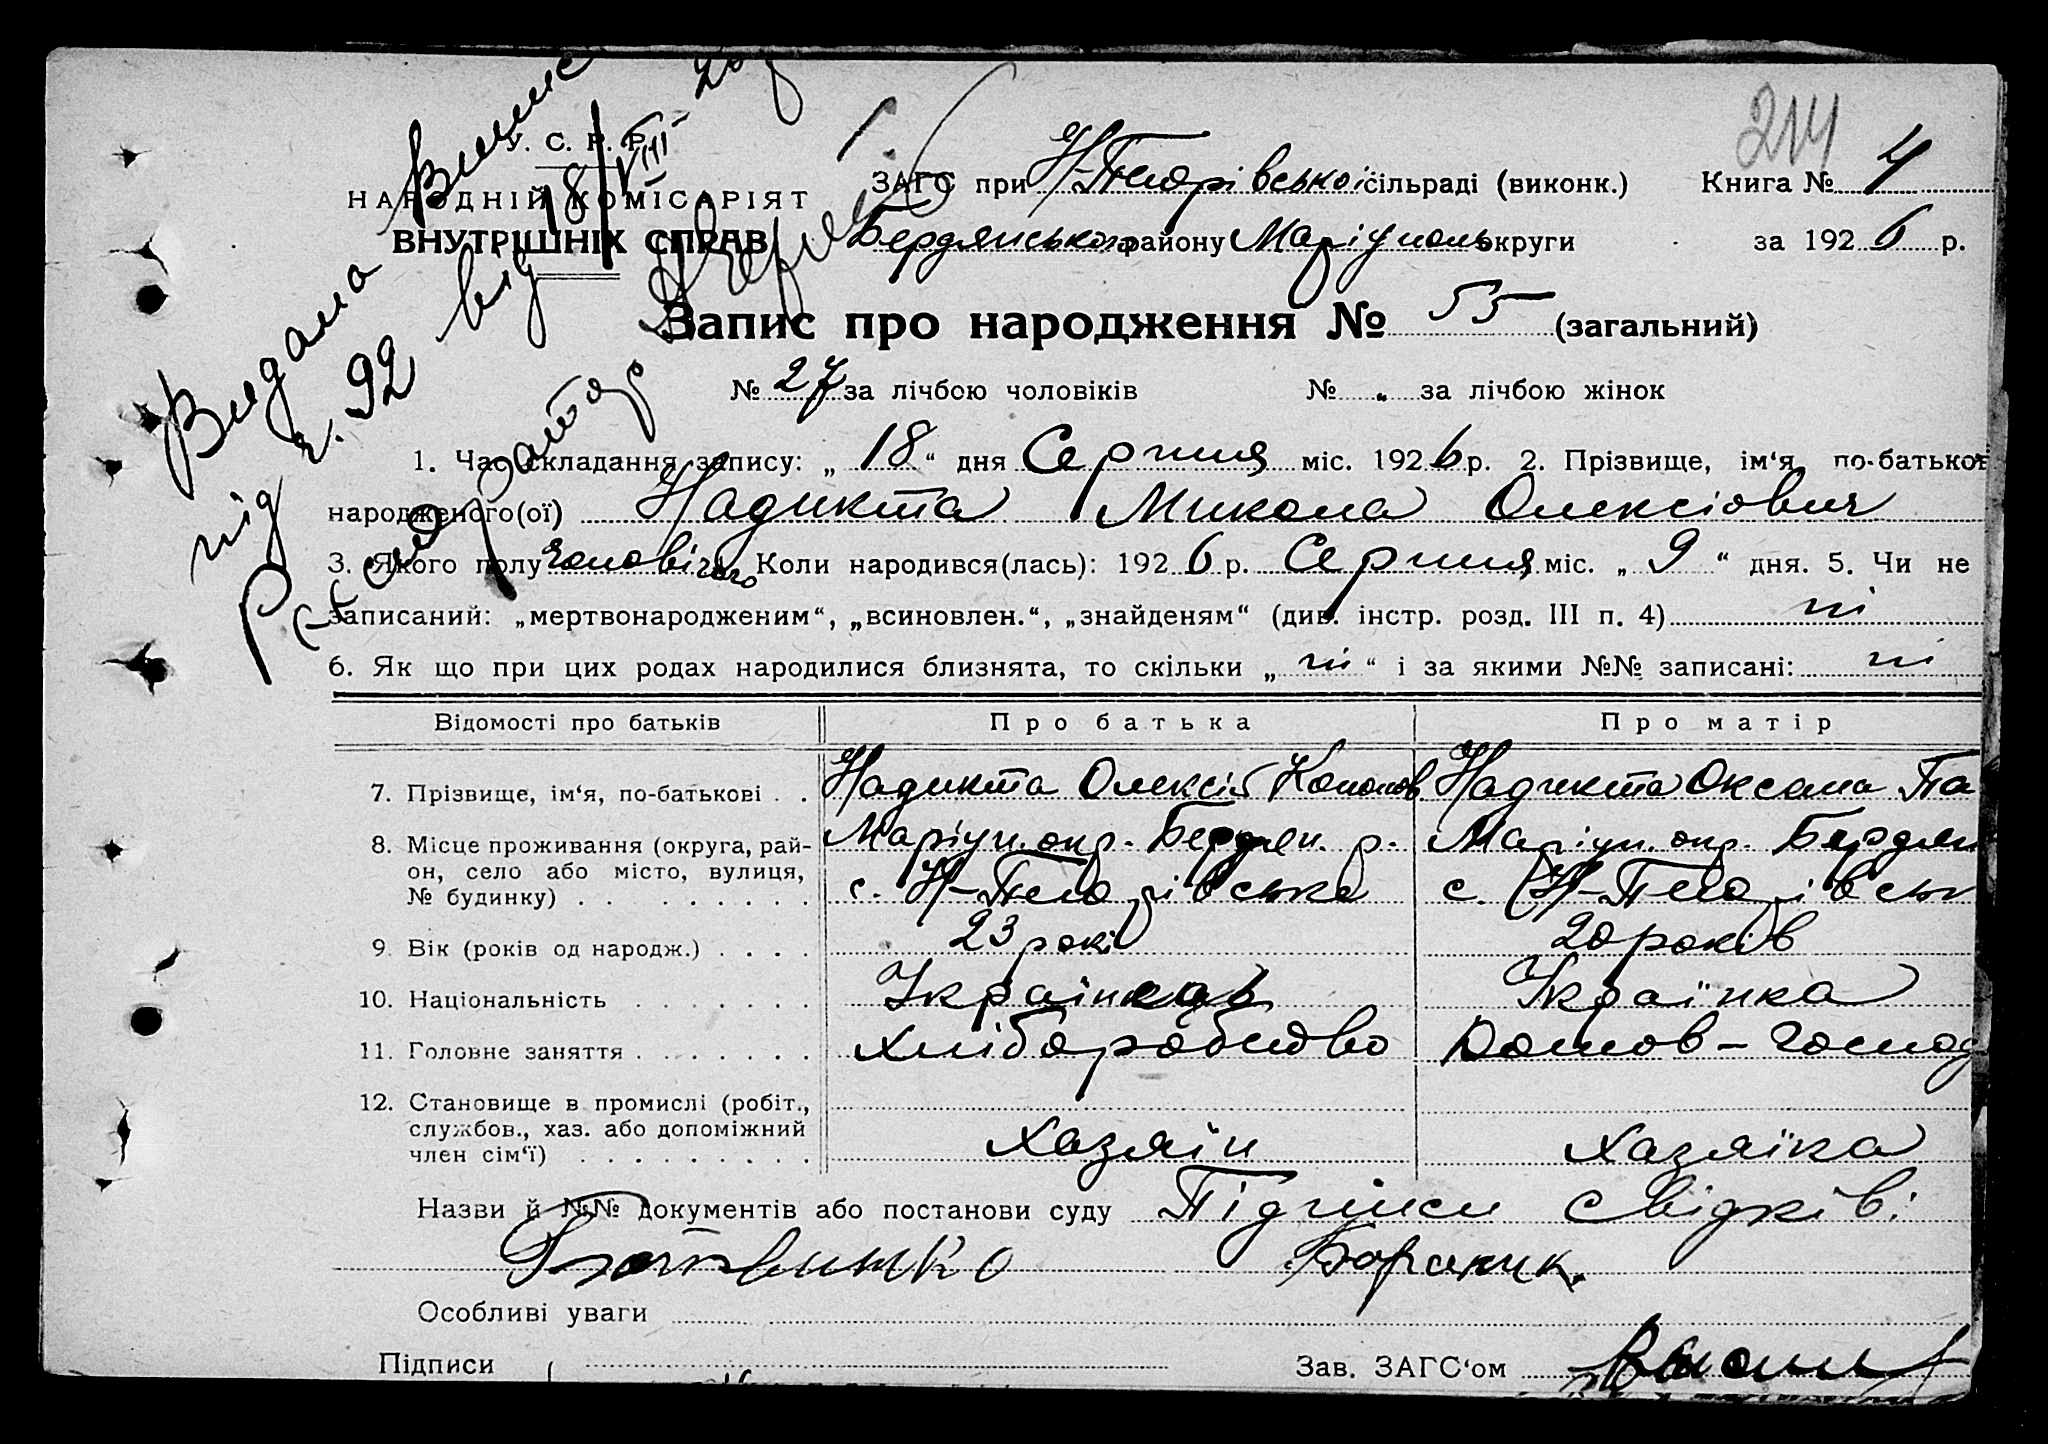 214
У. С. Р. Р.
НАРОДНІЙ КОМІСАРІЯТ
ВНУТРІШНІХ СПРАВ
ЗАГС при сільраді (виконк.) Книга № 4
Бердянського району Маріуполь округи за 1926 р.
Видана
під ч. 92 від 18/VIII
Запис про народження № 55 (загальний)
№ 27 за лічбою чоловіків № „ за лічбою жінок
1. Час складання запису: „18“ дня Серпня міс. 1926 р. 2. Прізвище, ім'я, по-батькові
народженого(ої) Надикта Микола Олексіович
3. Якого полу чоловічого Коли народився(лась): 1926 р. Серпня міс. „9“ дня. 5. Чи не
записаний: „мертвонародженим“, „всиновлен.“, „знайденям“ (див. інстр. розд. III п. 4) ні
6. Як що при цих родах народилися близнята, то скільки „ні“ і за якими №№ записані: ні
Відомості про батьків Про батька Про матір
7. Прізвище, ім'я, по-батькові . . Надикта Олексій Кононов. Надикта Оксана Па
8. Місце проживання (округа, рай- Маріуп. окр. Бердян. р. Маріуп. окр. Бердян
он, село або місто, вулиця,
№ будинку) . . . . . . . . с. с.
9 Вік (років од народж.) . . . . 23 років 20 років
10. Національність . . . . . . . Українець Українка
11. Головне заняття . . . . . . . Хліборобство Домов-господ
12. Становище в промислі (робіт.,
службов., хаз. або допоміжний
член сім'ї) . . . . . . . . . Хазяїн Хазяїка
Назви й №№ документів або постанови суду Підписи свідків:
Особливі уваги
Підписи Зав. ЗАГС'ом